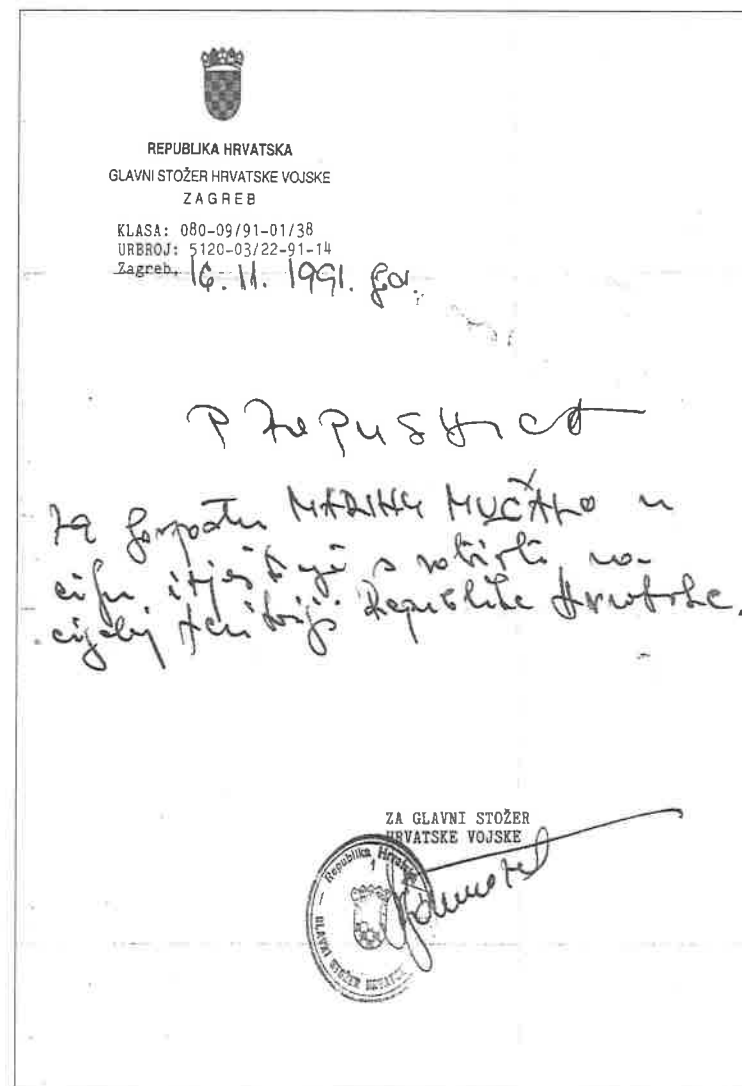 REPUBLIKA HRVATSKA
GLAVNI STOŽER HRVATSKE VOJSKE
ZAGREB
KLASA: 080-09/91-01/38
URBROJ: 5120-03/22-91-14
Zagreb, 16. 11. 1991. god.
Propusnica
za gospođu MARINU MUČALO u
cilju
cijeloj teritoriji Republike Hrvatske.
ZA GLAVNI STOŽER
HRVATSKE VOJSKE
Republika Hrvatska
1
GLAVNI STOŽER HRVATSKE